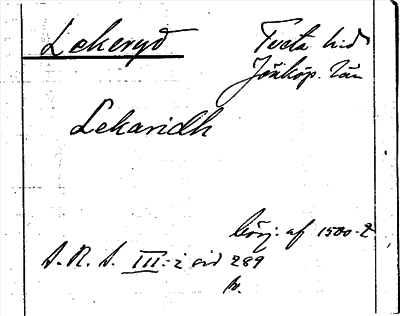 Lekeryd Tveta hd
Jönköp. län
Lekaridh
börj. af 1500-t
S.R.S. III:2 sid 289